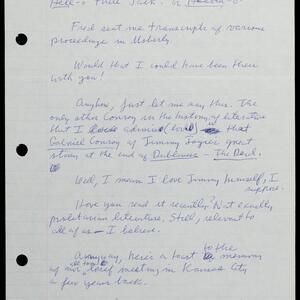 Hell-o there Jack. or Heaven-o
Fred sent me transcripts of various
proceedings in Moberly.
Would that I could have been there
with you!
Anyhow, just let me say this. The
only other Conroy in the history of literature
that I admire (love) is that
Gabriel Conroy of Jimmy Joyce's great
story at the end of Dubliners — The Dead.
Well, I mean I love Jimmy himself, I
suppose.
Have you read it recently? Not exactly
proletarian literature. Still, relevant to
all of us — I believe.
Anyway, here's a toast to the memory
of our all too brief meeting in Kansas City
a few years back.